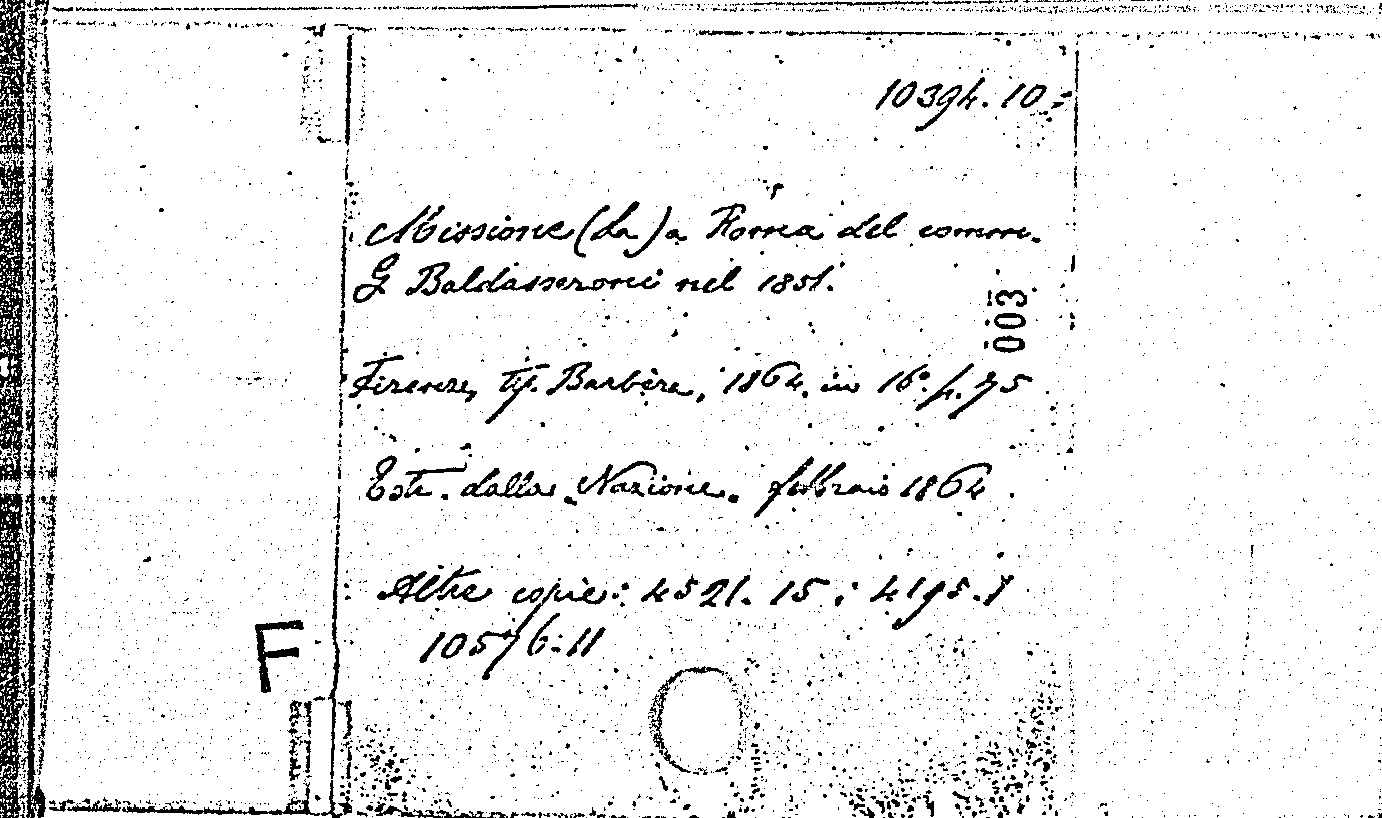 10394.10
Missione (La) a Roma del comm.
G Baldasseroni nel 1851.
003
Firenze, tip. Barbèra, 1864. in 16°. p. 75
Estr. dalla „Nazione„ febbraio 1864.
Altre copie: 4521. 15; 4195.7
10576.11
F